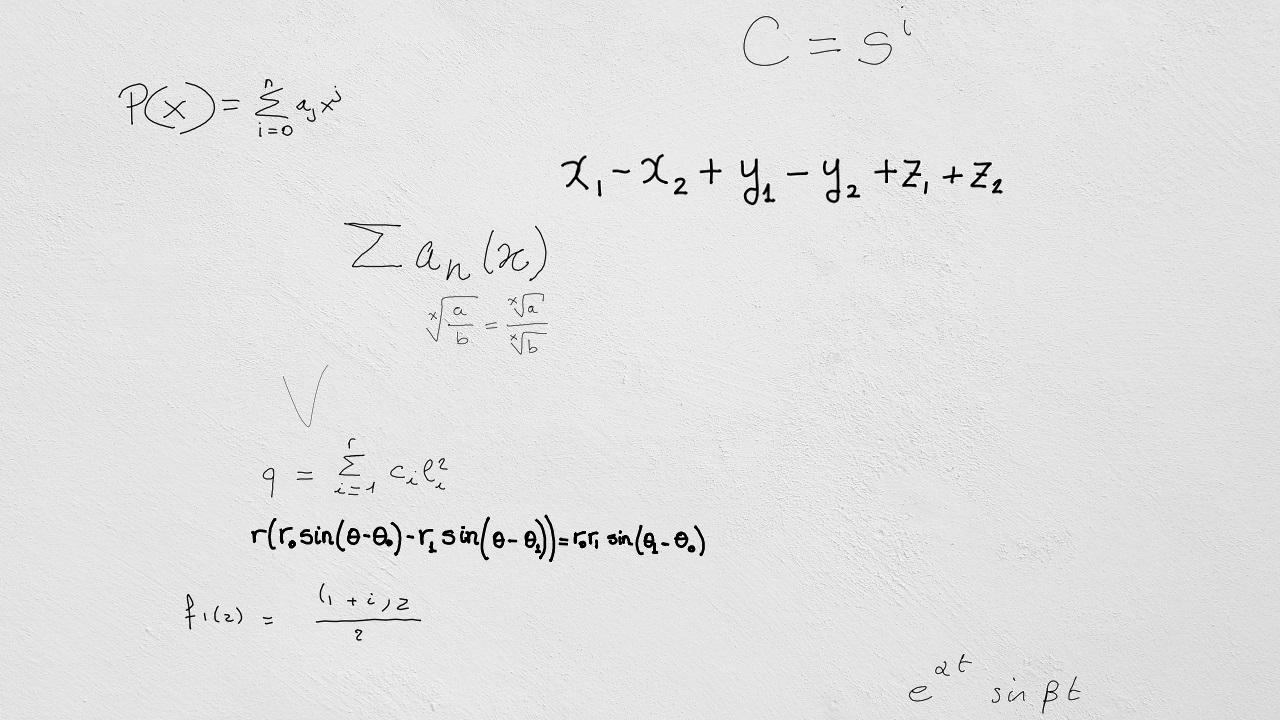 C = s^i
P(x) = \sum_{i=0}^{n} a_j x^j
x_1 - x_2 + y_1 - y_2 + z_1 + z_2
\sum a_n (x)
\sqrt[x]{\frac{a}{b}} = \frac{\sqrt[x]{a}}{\sqrt[x]{b}}
V
q = \sum_{i=1}^{r} c_i l_i^2
r(r_0 sin(θ-θ_0) - r_1 sin(θ-θ_1)) = r_0 r_1 sin(θ_1 - θ_0)
f_1(z) = \frac{(1+i)z}{2}
e^{αt} sin βt